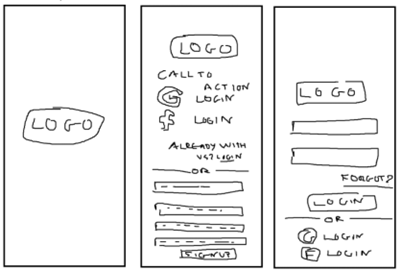 LOGO
LOGO
CALL TO
ACTION
G LOGIN
f LOGIN
ALREADY WITH
US? LOGIN
OR
SIGNUP
LOGO
FORGOT?
LOGIN
OR
G LOGIN
F LOGIN